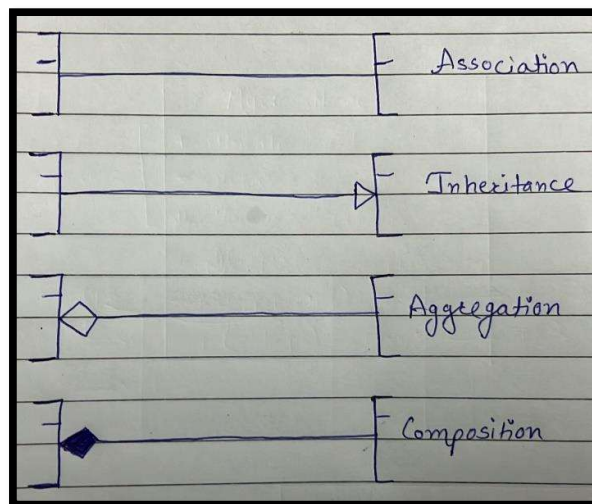 Association
Inheritance
Aggregation
Composition